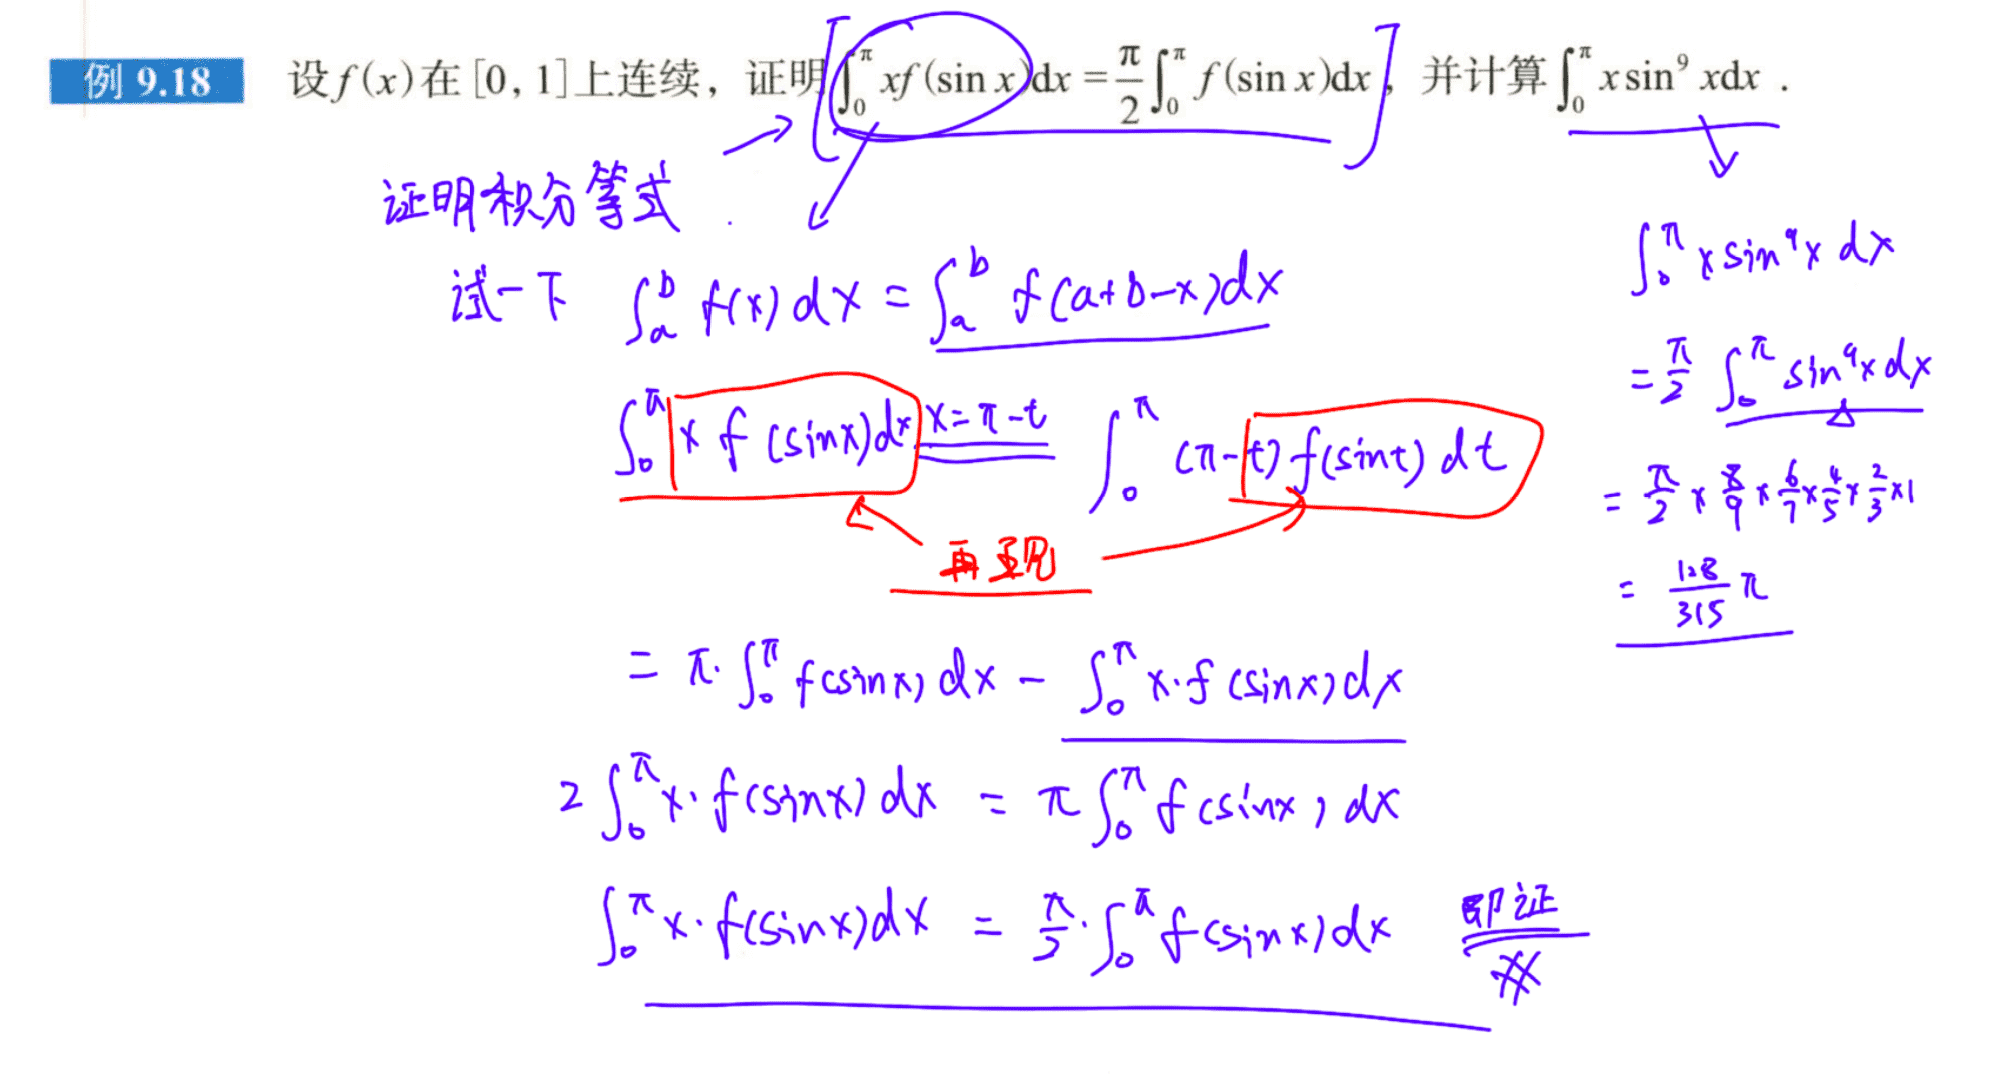 例 9.18 设f(x)在[0, 1]上连续，证明∫₀^π xf(sin x)dx = π/2 ∫₀^π f(sin x)dx，并计算∫₀^π x sin⁹ xdx .
证明积分等式
试一下 ∫ₐᵇ f(x) dx = ∫ₐᵇ f(a+b-x)dx
∫₀^π x f(sinx)dx x=π-t ∫₀^π (π-t) f(sint) dt
再现
= π·∫₀^π f(sinx) dx - ∫₀^π x·f(sinx)dx
2∫₀^π x·f(sinx)dx = π∫₀^π f(sinx) dx
∫₀^π x·f(sinx)dx = π/2·∫₀^π f(sinx)dx 即证
∫₀^π x sin⁹x dx
= π/2 ∫₀^π sin⁹x dx
= π/2 × 8/9 × 6/7 × 4/5 × 2/3 × 1
= 128/315 π